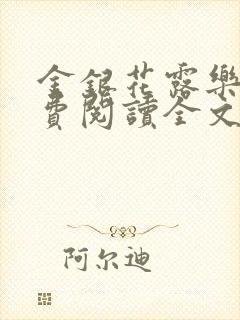 金銀花露樂
費閱讀全文
阿尔迪